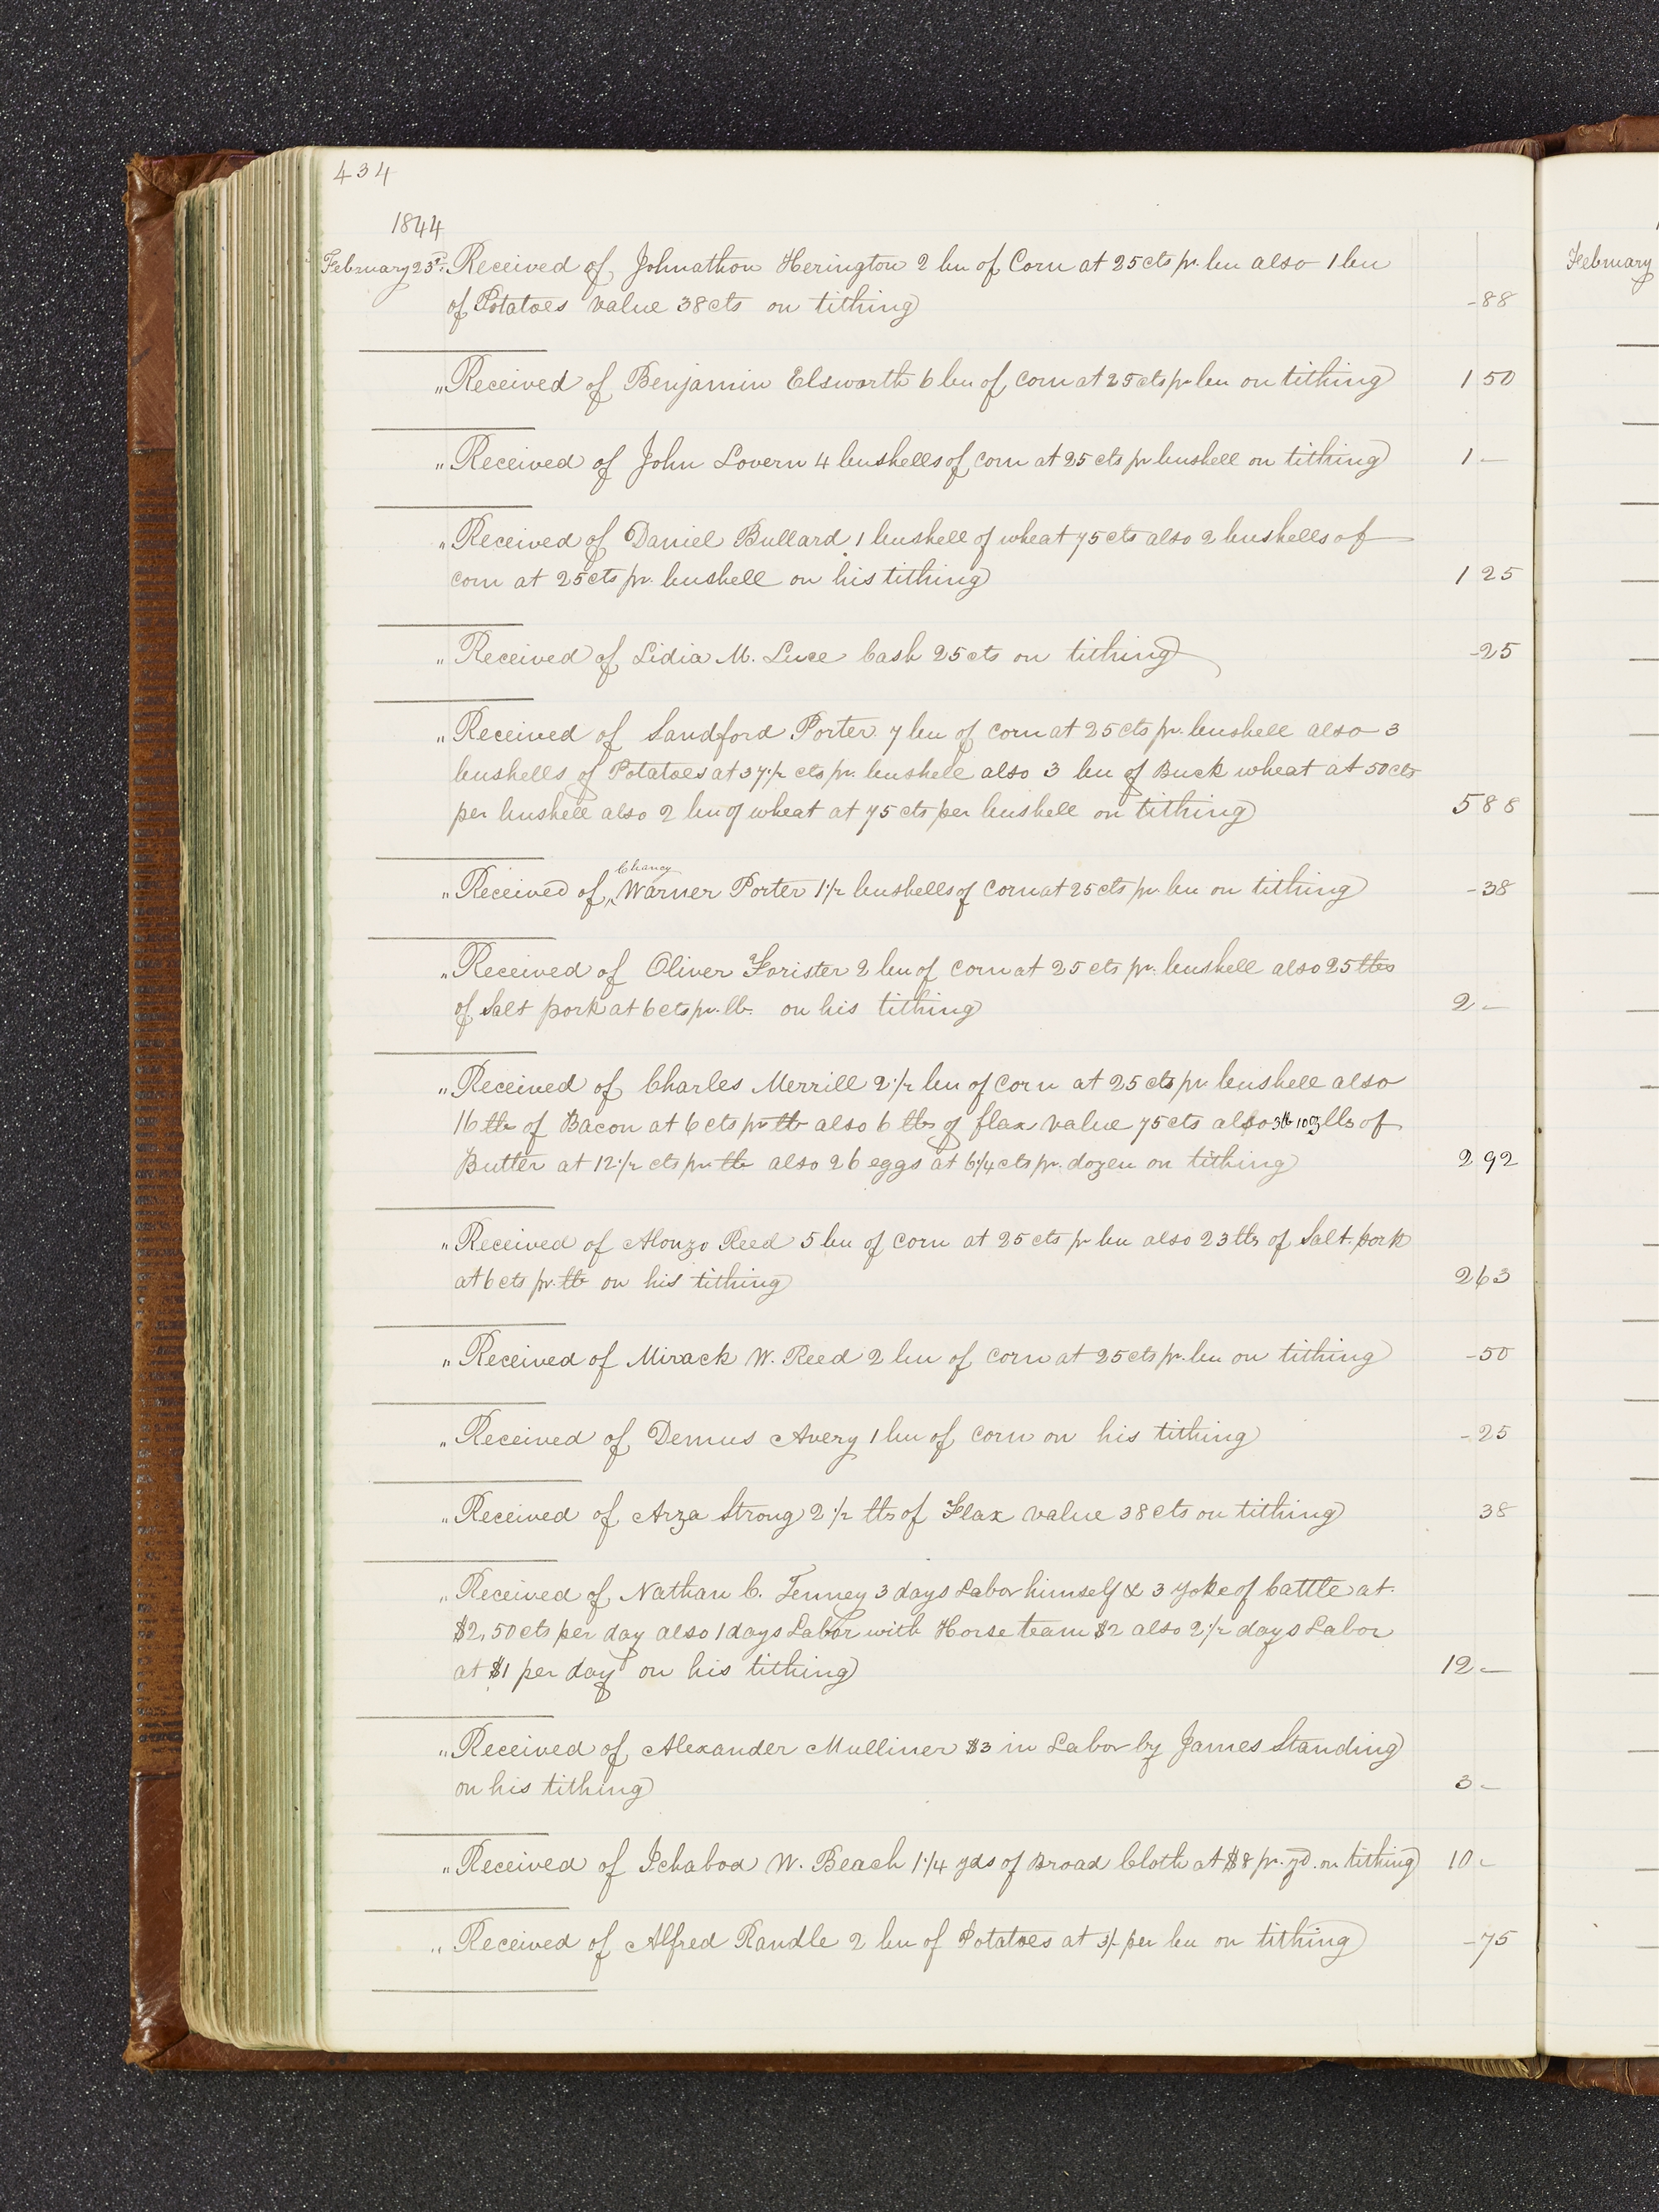 434
1844
February 23d. Received of Johnathon Herington 2 bu of Corn at 25 cts pr. bu also 1 bu
of Potatoes value 38 cts on tithing -88
" Received of Benjamin Elsworth 6 bu of corn at 25 cts pr bu on tithing 1 50
" Received of John Lovern 4 bushells of corn at 25 cts pr bushell on tithing 1 —
" Received of Daniel Bullard 1 bushell of wheat 75 cts also 2 bushells of
corn at 25 cts pr. bushell on his tithing 1 25
" Received of Lidia M. Luce Cash 25 cts on tithing -25
" Received of Sandford Porter 7 bu of corn at 25 cts pr. bushell also 3
bushells of Potatoes at 37 1/2 cts pr. bushell also 3 bu of Buck wheat at 50 cts
per bushell also 2 bu of wheat at 75 cts per bushell on tithing 5 88
Chancy
" Received of ^ Warner Porter 1 1/2 bushells of Corn at 25 cts pr. bu on tithing -38
" Received of Oliver Forister 2 bu of corn at 25 cts pr. bushell also 25 lbs
of Salt pork at 6 cts pr. lb. on his tithing 2 —
" Received of Charles Merrill 2 1/2 bu of Corn at 25 cts pr bushell also
16 lb of Bacon at 6 cts pr lb also 6 lbs of flax value 75 cts also 3 lb 10 oz lbs of
Butter at 12 1/2 cts pr. lb also 26 eggs at 6 1/4 cts pr. dozen on tithing 2 92
" Received of Alonzo Reed 5 bu of corn at 25 cts pr bu also 23 lbs of Salt pork
at 6 cts pr. lb on his tithing 2 63
" Received of Mirack W. Reed 2 bu of corn at 25 cts pr. bu on tithing -50
" Received of Demus Avery 1 bu of corn on his tithing -25
" Received of Arza Strong 2 1/2 lbs of Flax value 38 cts on tithing 38
" Received of Nathan C. Tenney 3 days Labor himself & 3 yoke of Cattle at
$2.50 cts per day also 1 days Labor with Horse team $2 also 2 1/2 days Labor
at $1 per day on his tithing 12 —
" Received of Alexander Mulliner $3 in Labor by James Standing
on his tithing 3 —
" Received of Ichabod W. Beach 1 1/4 yds of Broad Cloth at $8 pr. yd. on tithing 10 -
" Received of Alfred Randle 2 bu of Potatoes at 3/- per bu on tithing -75
February